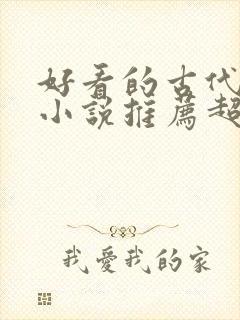 好看的古代
小説推薦超
我愛我的家